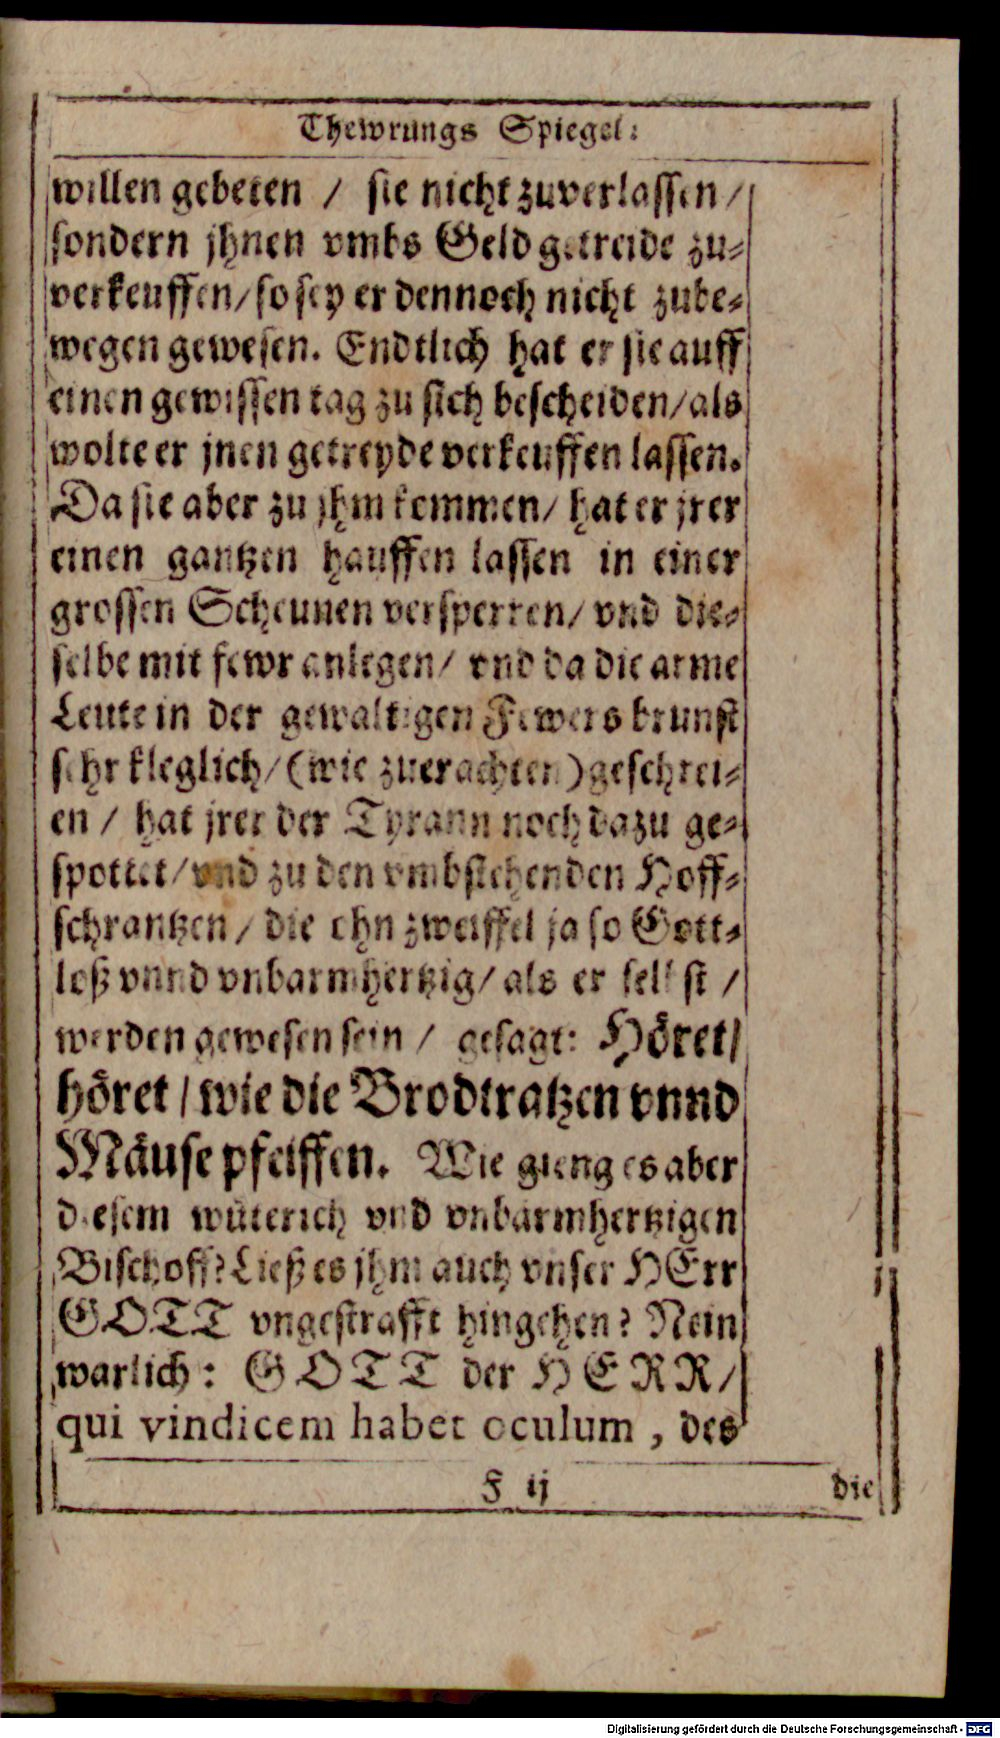 Thewrungs Spiegel:
willen gebeten / sie nicht zuverlassen /
sondern jhnen vmbs Geld getreide zu-
verkeuffen / so sey er dennoch nicht zube-
wegen gewesen. Endtlich hat er sie auff
einen gewissen tag zu sich bescheiden / als
wolte er jnen getreyde verkeuffen lassen.
Da sie aber zu jhm kommen / hat er jrer
einen gantzen hauffen lassen in einer
grossen Scheunen versperren / vnd die-
selbe mit fewr anlegen / vnd da die arme
Leute in der gewaltigen Fewers brunst
sehr kleglich / (wie zuerachten) geschrei-
en / hat jrer der Tyrann noch dazu ge-
spottet / vnd zu den vmbstehenden Hoff-
schrantzen / die ohn zweiffel ja so Gott-
loß vnnd vnbarmhertzig / als er selbst /
werden gewesen sein / gesagt: Höret /
höret / wie die Brodtratzen vnnd
Mäuse pfeiffen. Wie gieng es aber
diesem wüterich vnd vnbarmhertzigen
Bischoff? Ließ es jhm auch vnser HErr
GOTT vngestrafft hingehen? Nein
warlich: GOTT der HERR /
qui vindicem habet oculum, des
F ij
die
Digitalisierung gefördert durch die Deutsche Forschungsgemeinschaft - DFG